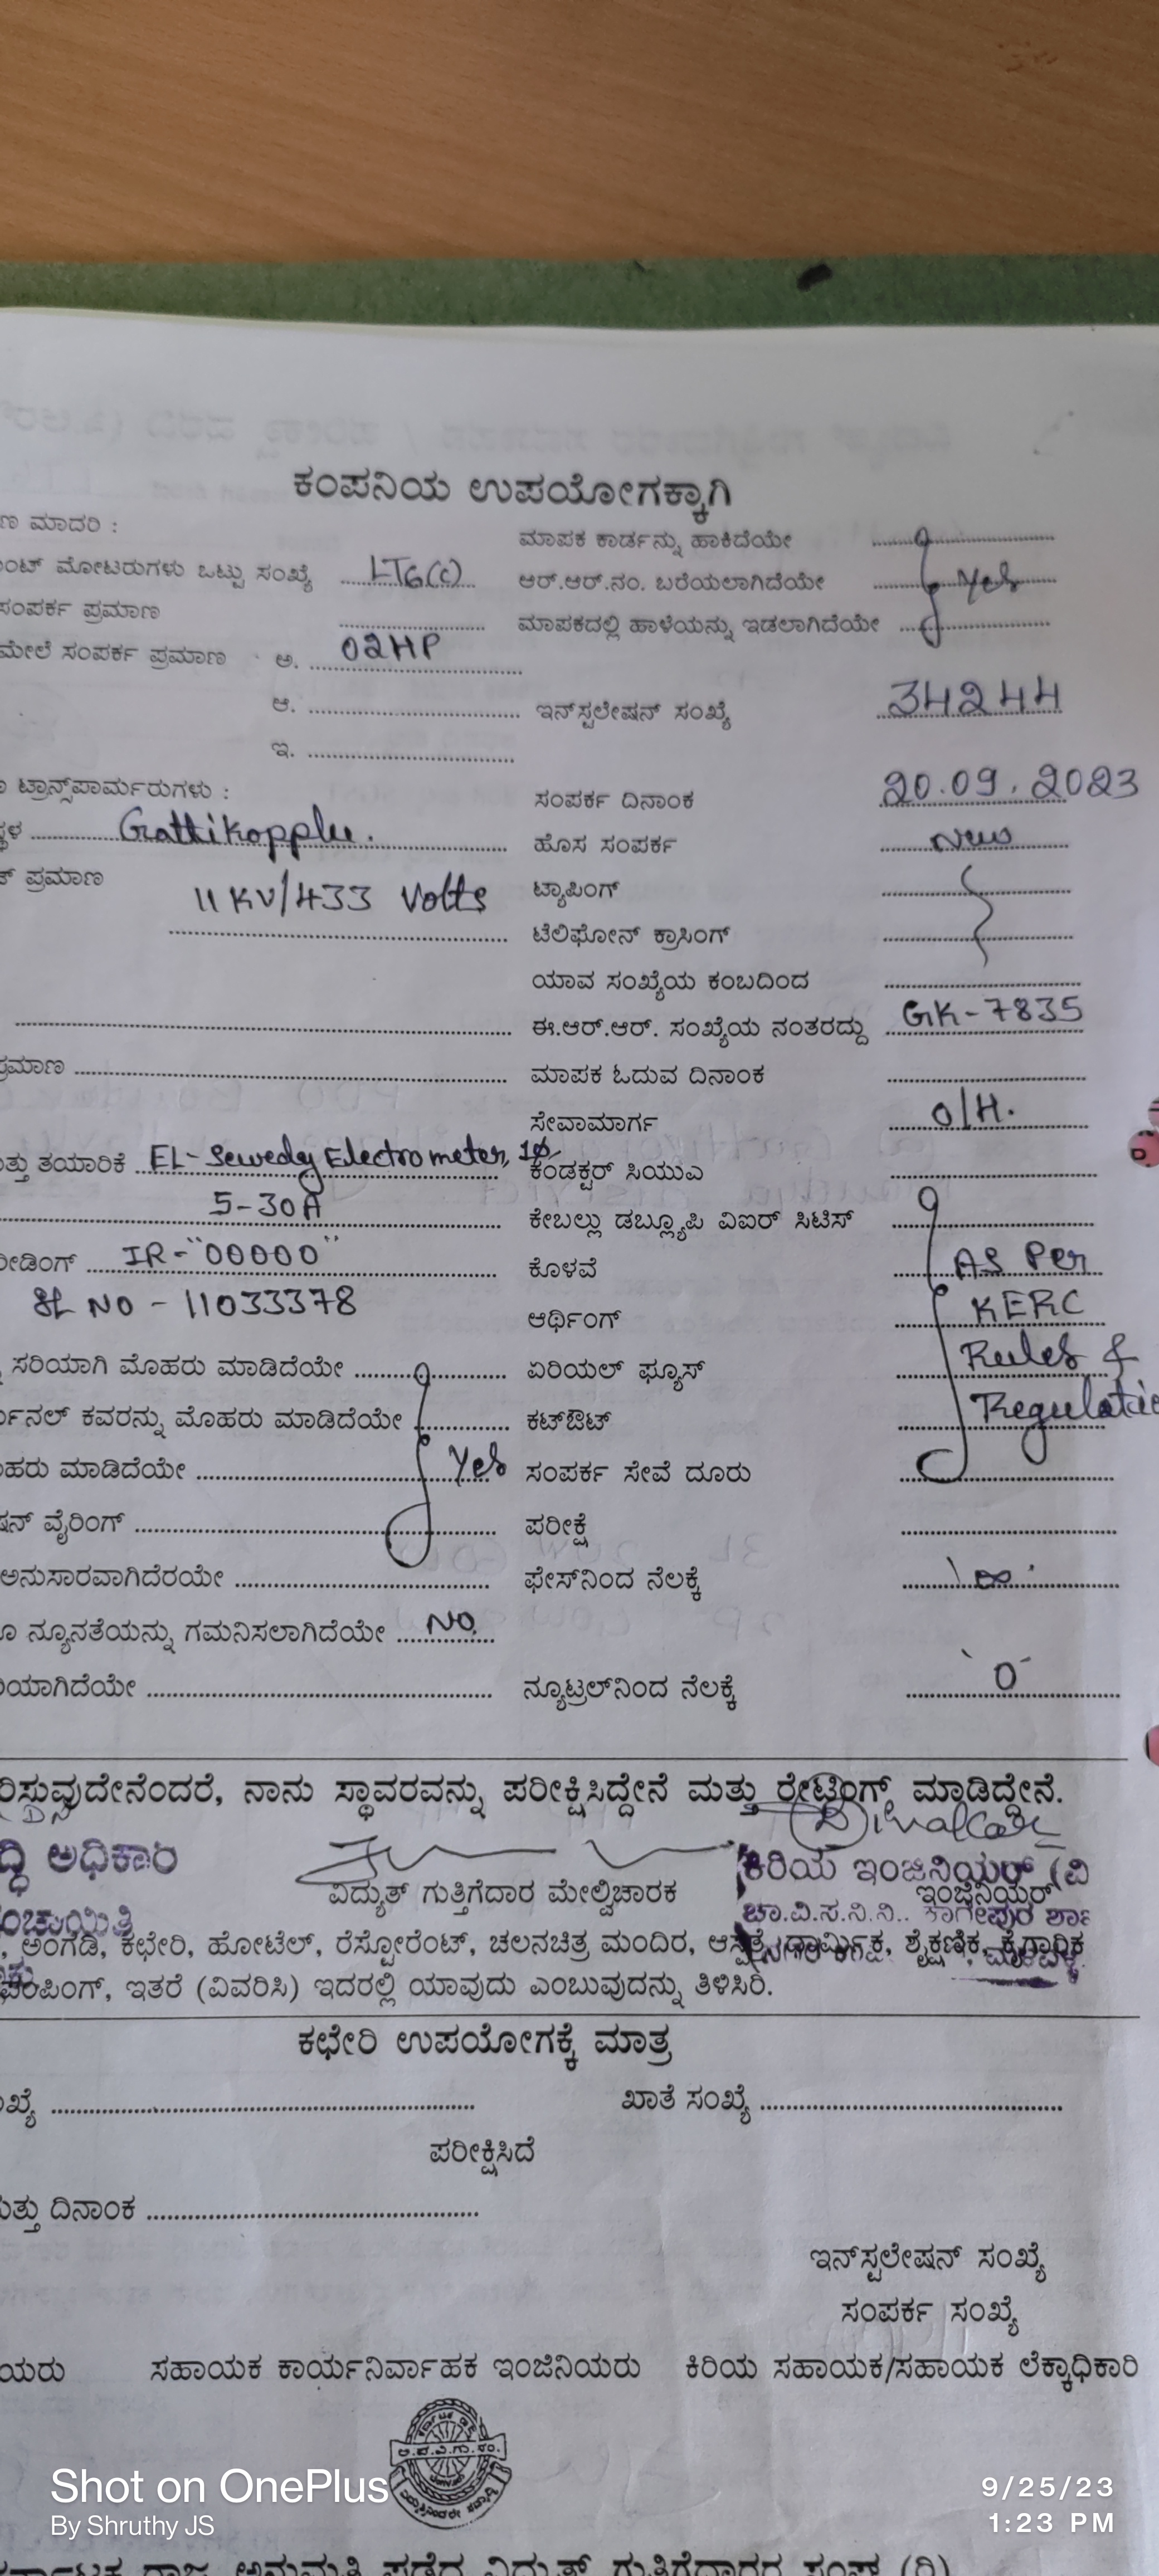 ಕಂಪನಿಯ ಉಪಯೋಗಕ್ಕಾಗಿ
ಣ ಮಾದರಿ : ಮಾಪಕ ಕಾರ್ಡನ್ನು ಹಾಕಿದೆಯೇ
ಂಟ್ ಮೋಟರುಗಳು ಒಟ್ಟು ಸಂಖ್ಯೆ LT6(c) ಆರ್.ಆರ್.ನಂ. ಬರೆಯಲಾಗಿದೆಯೇ Yes
ಸಂಪರ್ಕ ಪ್ರಮಾಣ ಮಾಪಕದಲ್ಲಿ ಹಾಳೆಯನ್ನು ಇಡಲಾಗಿದೆಯೇ
ಮೇಲೆ ಸಂಪರ್ಕ ಪ್ರಮಾಣ ಅ. 02HP
ಆ. ಇನ್‌ಸ್ಟಲೇಷನ್ ಸಂಖ್ಯೆ 34244
ಇ.
ಟ್ರಾನ್ಸ್‌ಪಾರ್ಮರುಗಳು : ಸಂಪರ್ಕ ದಿನಾಂಕ 20.09.2023
ಸ್ಥಳ Gattikopplu. ಹೊಸ ಸಂಪರ್ಕ New
ಕ್ ಪ್ರಮಾಣ 11 KV/433 Volts ಟ್ಯಾಪಿಂಗ್
ಟೆಲಿಫೋನ್ ಕ್ರಾಸಿಂಗ್
ಯಾವ ಸಂಖ್ಯೆಯ ಕಂಬದಿಂದ
ಈ.ಆರ್.ಆರ್. ಸಂಖ್ಯೆಯ ನಂತರದ್ದು GK-7835
ಪ್ರಮಾಣ ಮಾಪಕ ಓದುವ ದಿನಾಂಕ
ಸೇವಾಮಾರ್ಗ O/H.
ತ್ತು ತಯಾರಿಕೆ EL-Sewedy Electrometer, 1ϕ ಕಂಡಕ್ಟರ್ ಸಿಯುಎ
5-30A ಕೇಬಲ್ಲು ಡಬ್ಲ್ಯೂಪಿ ವಿಐರ್ ಸಿಟಿಸ್
ೀಡಿಂಗ್ IR-"00000" ಕೊಳವೆ AS Per
SL NO - 11033378 ಆರ್ಥಿಂಗ್ KERC
ಸರಿಯಾಗಿ ಮೊಹರು ಮಾಡಿದೆಯೇ ಏರಿಯಲ್ ಫ್ಯೂಸ್ Rules &
ರ್ಮಿನಲ್ ಕವರನ್ನು ಮೊಹರು ಮಾಡಿದೆಯೇ ಕಟ್‌ಔಟ್ Regulatio
ೊಹರು ಮಾಡಿದೆಯೇ Yes ಸಂಪರ್ಕ ಸೇವೆ ದೂರು
ಷನ್ ವೈರಿಂಗ್ ಪರೀಕ್ಷೆ
ಅನುಸಾರವಾಗಿದೆರಯೇ ಫೇಸ್‌ನಿಂದ ನೆಲಕ್ಕೆ ∞
ನ್ಯೂನತೆಯನ್ನು ಗಮನಿಸಲಾಗಿದೆಯೇ NO
ಿಯಾಗಿದೆಯೇ ನ್ಯೂಟ್ರಲ್‌ನಿಂದ ನೆಲಕ್ಕೆ 0
ರಿಸ್ತುವುದೇನೆಂದರೆ, ನಾನು ಸ್ಥಾವರವನ್ನು ಪರೀಕ್ಷಿಸಿದ್ದೇನೆ ಮತ್ತು ರೇಟಿಂಗ್ ಮಾಡಿದ್ದೇನೆ.
ದ್ಧಿ ಅಧಿಕಾರಿ ಕಿರಿಯ ಇಂಜಿನಿಯರ್ (ವಿ
ವಿದ್ಯುತ್ ಗುತ್ತಿಗೆದಾರ ಮೇಲ್ವಿಚಾರಕ ಇಂಜಿನಿಯರ್
ಂಚಾಯಿತಿ ಚಾ.ವಿ.ಸ.ನಿ.ನಿ..
, ಅಂಗಡಿ, ಕಛೇರಿ, ಹೋಟೆಲ್, ರೆಸ್ಟೋರೆಂಟ್, ಚಲನಚಿತ್ರ ಮಂದಿರ, ಆಸ್ಪತ್ರೆ, ಧಾರ್ಮಿಕ, ಶೈಕ್ಷಣಿಕ, ಕೈಗಾರಿಕ
ಪಂಪಿಂಗ್, ಇತರೆ (ವಿವರಿಸಿ) ಇದರಲ್ಲಿ ಯಾವುದು ಎಂಬುವುದನ್ನು ತಿಳಿಸಿರಿ.
ಕಛೇರಿ ಉಪಯೋಗಕ್ಕೆ ಮಾತ್ರ
ಖ್ಯೆ ಖಾತೆ ಸಂಖ್ಯೆ
ಪರೀಕ್ಷಿಸಿದೆ
ುತ್ತು ದಿನಾಂಕ
ಇನ್‌ಸ್ಟಲೇಷನ್ ಸಂಖ್ಯೆ
ಸಂಪರ್ಕ ಸಂಖ್ಯೆ
ಯರು ಸಹಾಯಕ ಕಾರ್ಯನಿರ್ವಾಹಕ ಇಂಜಿನಿಯರು ಕಿರಿಯ ಸಹಾಯಕ/ಸಹಾಯಕ ಲೆಕ್ಕಾಧಿಕಾರಿ
Shot on OnePlus 9/25/23
By Shruthy JS 1:23 PM
ರ್ನಾಟಕ ರಾಜ್ಯ ಅನುಮತಿ ಪಡೆದ ವಿದ್ಯುತ್ ಗುತ್ತಿಗೆದಾರರ ಸಂಘ (ರಿ)